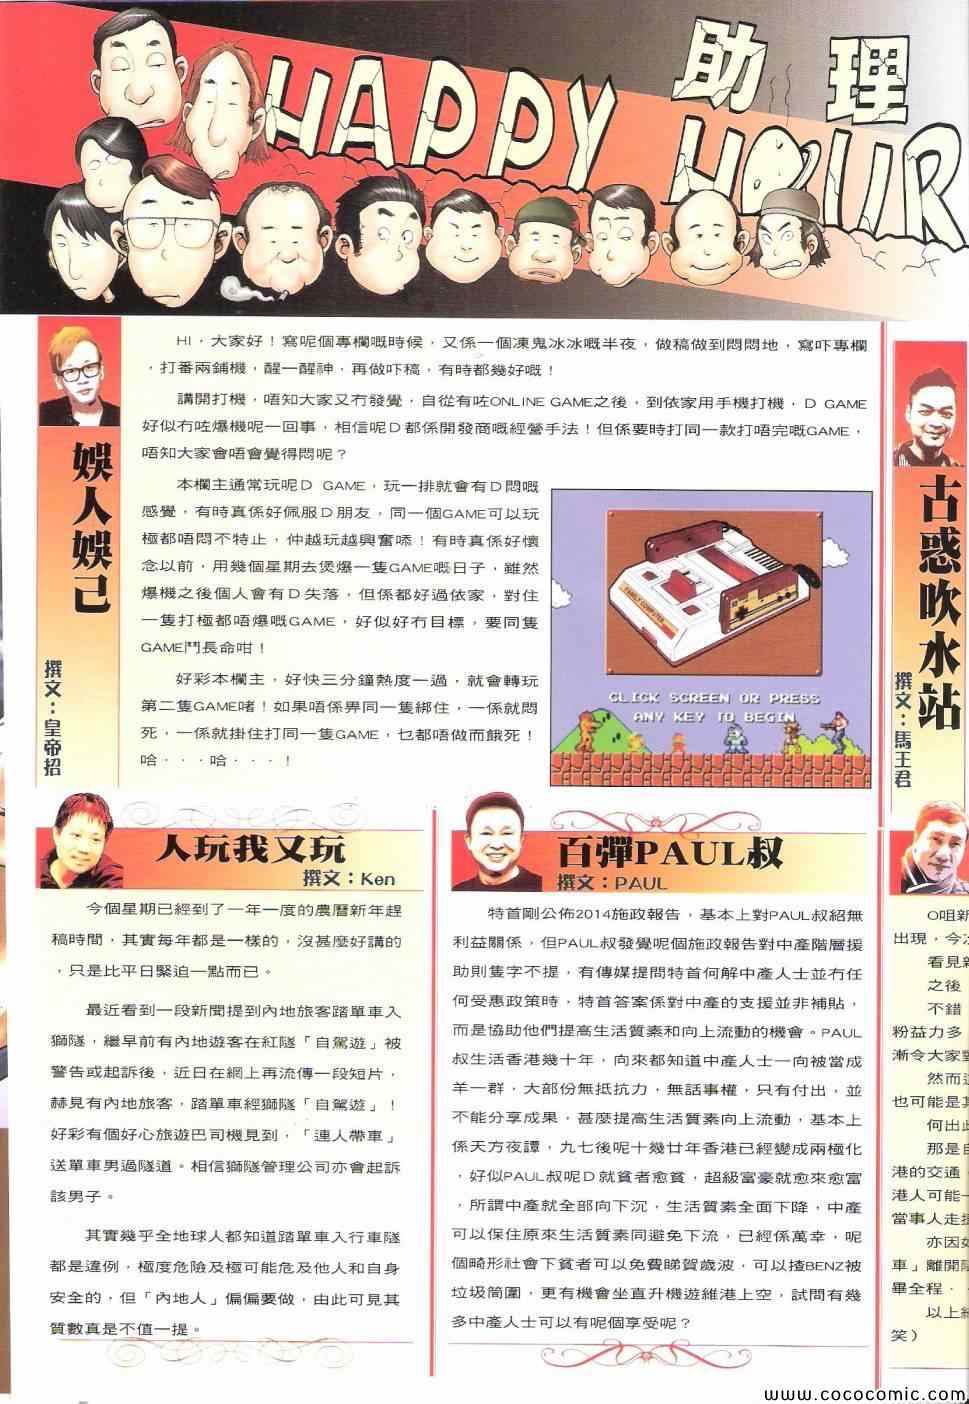 助理
HAPPY HOUR
娛人娛己
撰文：皇帝招
HI，大家好！寫呢個專欄嘅時候，又係一個凍鬼冰冰嘅半夜，做稿做到悶悶地，寫吓專欄
，打番兩鋪機，醒一醒神，再做吓稿，有時都幾好嘅！
講開打機，唔知大家又冇發覺，自從有咗ONLINE GAME之後，到依家用手機打機，D GAME
好似冇咗爆機呢一回事，相信呢D都係開發商嘅經營手法！但係要時打同一款打唔完嘅GAME，
唔知大家會唔會覺得悶呢？
本欄主通常玩呢D GAME，玩一排就會有D悶嘅
感覺，有時真係好佩服D朋友，同一個GAME可以玩
極都唔悶不特止，仲越玩越興奮㖭！有時真係好懷
念以前，用幾個星期去煲爆一隻GAME嘅日子，雖然
爆機之後個人會有D失落，但係都好過依家，對住
一隻打極都唔爆嘅GAME，好似好冇目標，要同隻
GAME鬥長命咁！
好彩本欄主，好快三分鐘熱度一過，就會轉玩
第二隻GAME啫！如果唔係畀同一隻綁住，一係就悶
死，一係就掛住打同一隻GAME，乜都唔做而餓死！
哈．．．哈．．．！
FAMILY COMPUTER
CLICK SCREEN OR PRESS
ANY KEY TO BEGIN
人玩我又玩
撰文：Ken
今個星期已經到了一年一度的農曆新年趕
稿時間，其實每年都是一樣的，沒甚麼好講的
，只是比平日緊迫一點而已。
最近看到一段新聞提到內地旅客踏單車入
獅隧，繼早前有內地遊客在紅隧「自駕遊」被
警告或起訴後，近日在網上再流傳一段短片，
赫見有內地旅客，踏單車經獅隧「自駕遊」！
好彩有個好心旅遊巴司機見到，「連人帶車」
送單車男過隧道。相信獅隧管理公司亦會起訴
該男子。
其實幾乎全地球人都知道踏單車入行車隧
都是違例，極度危險及極可能危及他人和自身
安全的，但「內地人」偏偏要做，由此可見其
質數真是不值一提。
百彈PAUL叔
撰文：PAUL
特首剛公佈2014施政報告，基本上對PAUL叔絕無
利益關係，但PAUL叔發覺呢個施政報告對中產階層援
助則隻字不提，有傳媒提問特首何解中產人士並冇任
何受惠政策時，特首答案係對中產的支援並非補貼，
而是協助他們提高生活質素和向上流動的機會。PAUL
叔生活香港幾十年，向來都知道中產人士一向被當成
羊一群，大部份無抵抗力，無話事權，只有付出，並
不能分享成果，甚麼提高生活質素向上流動，基本上
係天方夜譚，九七後呢十幾廿年香港已經變成兩極化
，好似PAUL叔呢D就貧者愈貧，超級富豪就愈來愈富
，所謂中產就全部向下沉，生活質素全面下降，中產
可以保住原來生活質素同避免下流，已經係萬幸，呢
個畸形社會下貧者可以免費睇賀歲波，可以揸BENZ被
垃圾筒圍，更有機會坐直升機遊維港上空，試問有幾
多中產人士可以有呢個享受呢？
古惑吹水站
撰文：馬王君
O咀新
出現，今次
看見新
之後，
不錯，
粉益力多，
漸令大家對
然而這
也可能是其
何出此
那是自
港的交通，
港人可能一
當事人走掛
亦因如
車」離開隧
畢全程．
以上純
笑）
www.cococomic.com